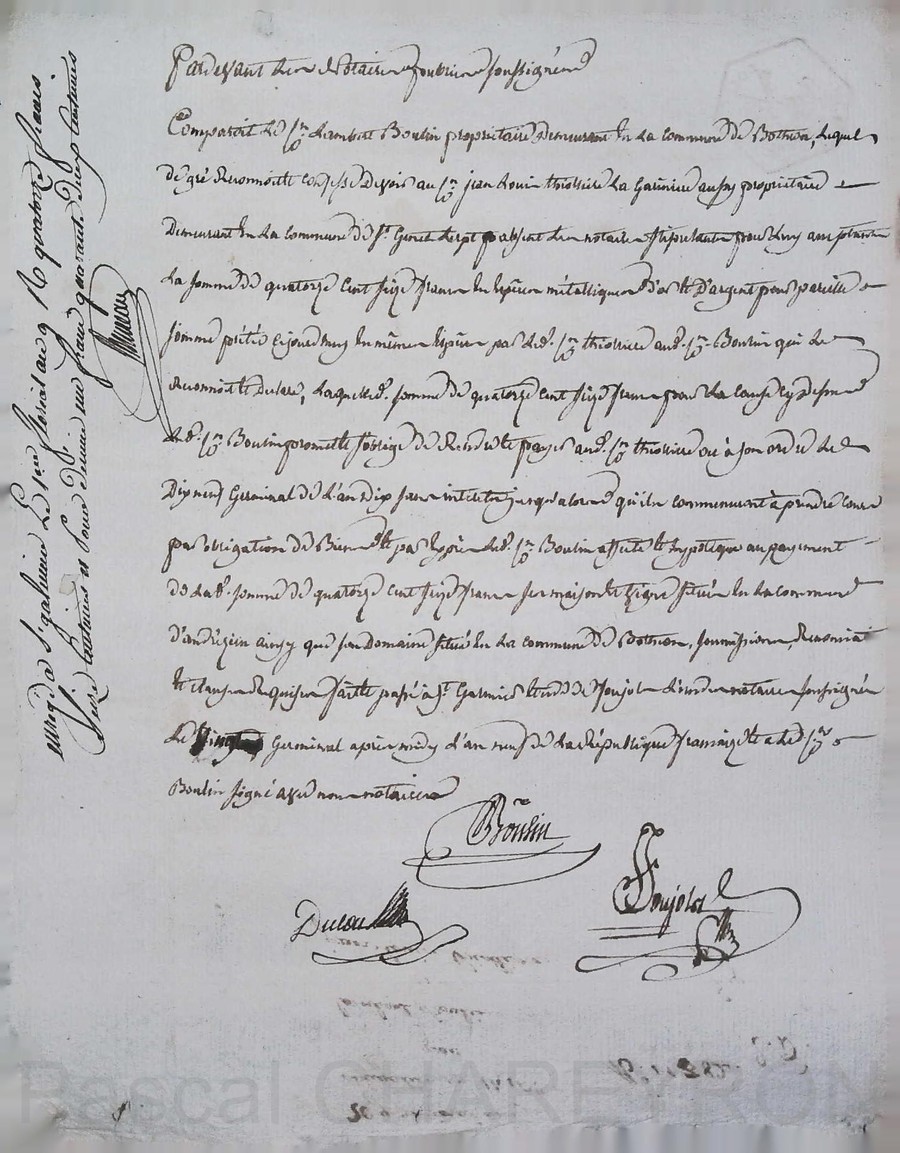 Pardevant les Notaires publics soussignés
Comparoit le Sr Lambert Boulin propriétaire demeurant en la commune de Bothéon, lequel
de gré reconnoit et confesse devoir au Sr jean Louis thiolliere La Garinière aussy propriétaire
Demeurant en la commune de St Genest Lerpt absent les notaires stipulants pour luy
La somme de quatorze cent seize francs en espèces métalliques d'or et d'argent pour pareille
somme prêtée ce jourd'huy en même espèces par led. Sr thiolliere aud. Sr Boulin qui le
reconnoit et déclare, laquelle d. somme de quatorze cent seize francs pour la cause cy dessus
led. Sr Boulin promet et s'oblige de rendre et payer aud. Sr thiolliere ou à son ordre le
Dix neuf Germinal de l'an dix sans interets jusqu'alors qu'ils commenceront à prendre cours
par obligation de Biens et par exprès led. Sr Boulin affecte et hypotèque au payement
de lad. somme de quatorze cent seize francs ses maison et située en la commune
d'andrézieu ainsy que son Domaine situé en la commune de Bothéon, soumissions, renonciat
et clauses requises fait et passé à St Garmier etude de Poujol l'un des notaires soussignés
Le Germinal après midy l'an neuf de la République française et a led. Sr
Boulin signé avec nous notaires
Boulin
Poujol
enregé à St galmier Le 1er floréal an 9 Rç quatorze francs
centimes et pour demie un franc quarante deux centimes